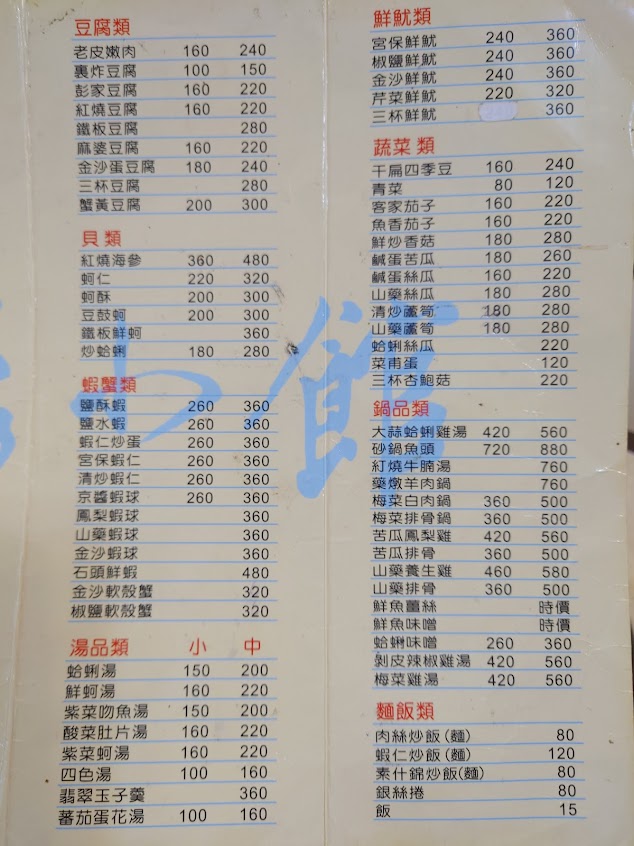 豆腐類
老皮嫩肉 160 240
裹炸豆腐 100 150
彭家豆腐 160 220
紅燒豆腐 160 220
鐵板豆腐 280
麻婆豆腐 160 220
金沙蛋豆腐 180 240
三杯豆腐 280
蟹黃豆腐 200 300
貝類
紅燒海參 360 480
蚵仁 220 320
蚵酥 200 300
豆鼓蚵 200 300
鐵板鮮蚵 360
炒蛤蜊 180 280
蝦蟹類
鹽酥蝦 260 360
鹽水蝦 260 360
蝦仁炒蛋 260 360
宮保蝦仁 260 360
清炒蝦仁 260 360
京醬蝦球 260 360
鳳梨蝦球 360
山藥蝦球 360
金沙蝦球 360
石頭鮮蝦 480
金沙軟殼蟹 320
椒鹽軟殼蟹 320
湯品類 小 中
蛤蜊湯 150 200
鮮蚵湯 160 220
紫菜吻魚湯 150 200
酸菜肚片湯 160 220
紫菜蚵湯 160 220
四色湯 100 160
翡翠玉子羹 360
蕃茄蛋花湯 100 160
鮮魷類
宮保鮮魷 240 360
椒鹽鮮魷 240 360
金沙鮮魷 240 360
芹菜鮮魷 220 320
三杯鮮魷 360
蔬菜類
干扁四季豆 160 240
青菜 80 120
客家茄子 160 220
魚香茄子 160 220
鮮炒香菇 180 280
鹹蛋苦瓜 180 260
鹹蛋絲瓜 160 220
山藥絲瓜 180 280
清炒蘆筍 180 280
山藥蘆筍 180 280
蛤蜊絲瓜 220
菜甫蛋 120
三杯杏鮑菇 220
鍋品類
大蒜蛤蜊雞湯 420 560
砂鍋魚頭 720 880
紅燒牛腩湯 760
藥燉羊肉鍋 760
梅菜白肉鍋 360 500
梅菜排骨鍋 360 500
苦瓜鳳梨雞 420 560
苦瓜排骨 360 500
山藥養生雞 460 580
山藥排骨 360 500
鮮魚薑絲 時價
鮮魚味噌 時價
蛤蜊味噌 260 360
剝皮辣椒雞湯 420 560
梅菜雞湯 420 560
麵飯類
肉絲炒飯(麵) 80
蝦仁炒飯(麵) 120
素什錦炒飯(麵) 80
銀絲捲 80
飯 15
小館